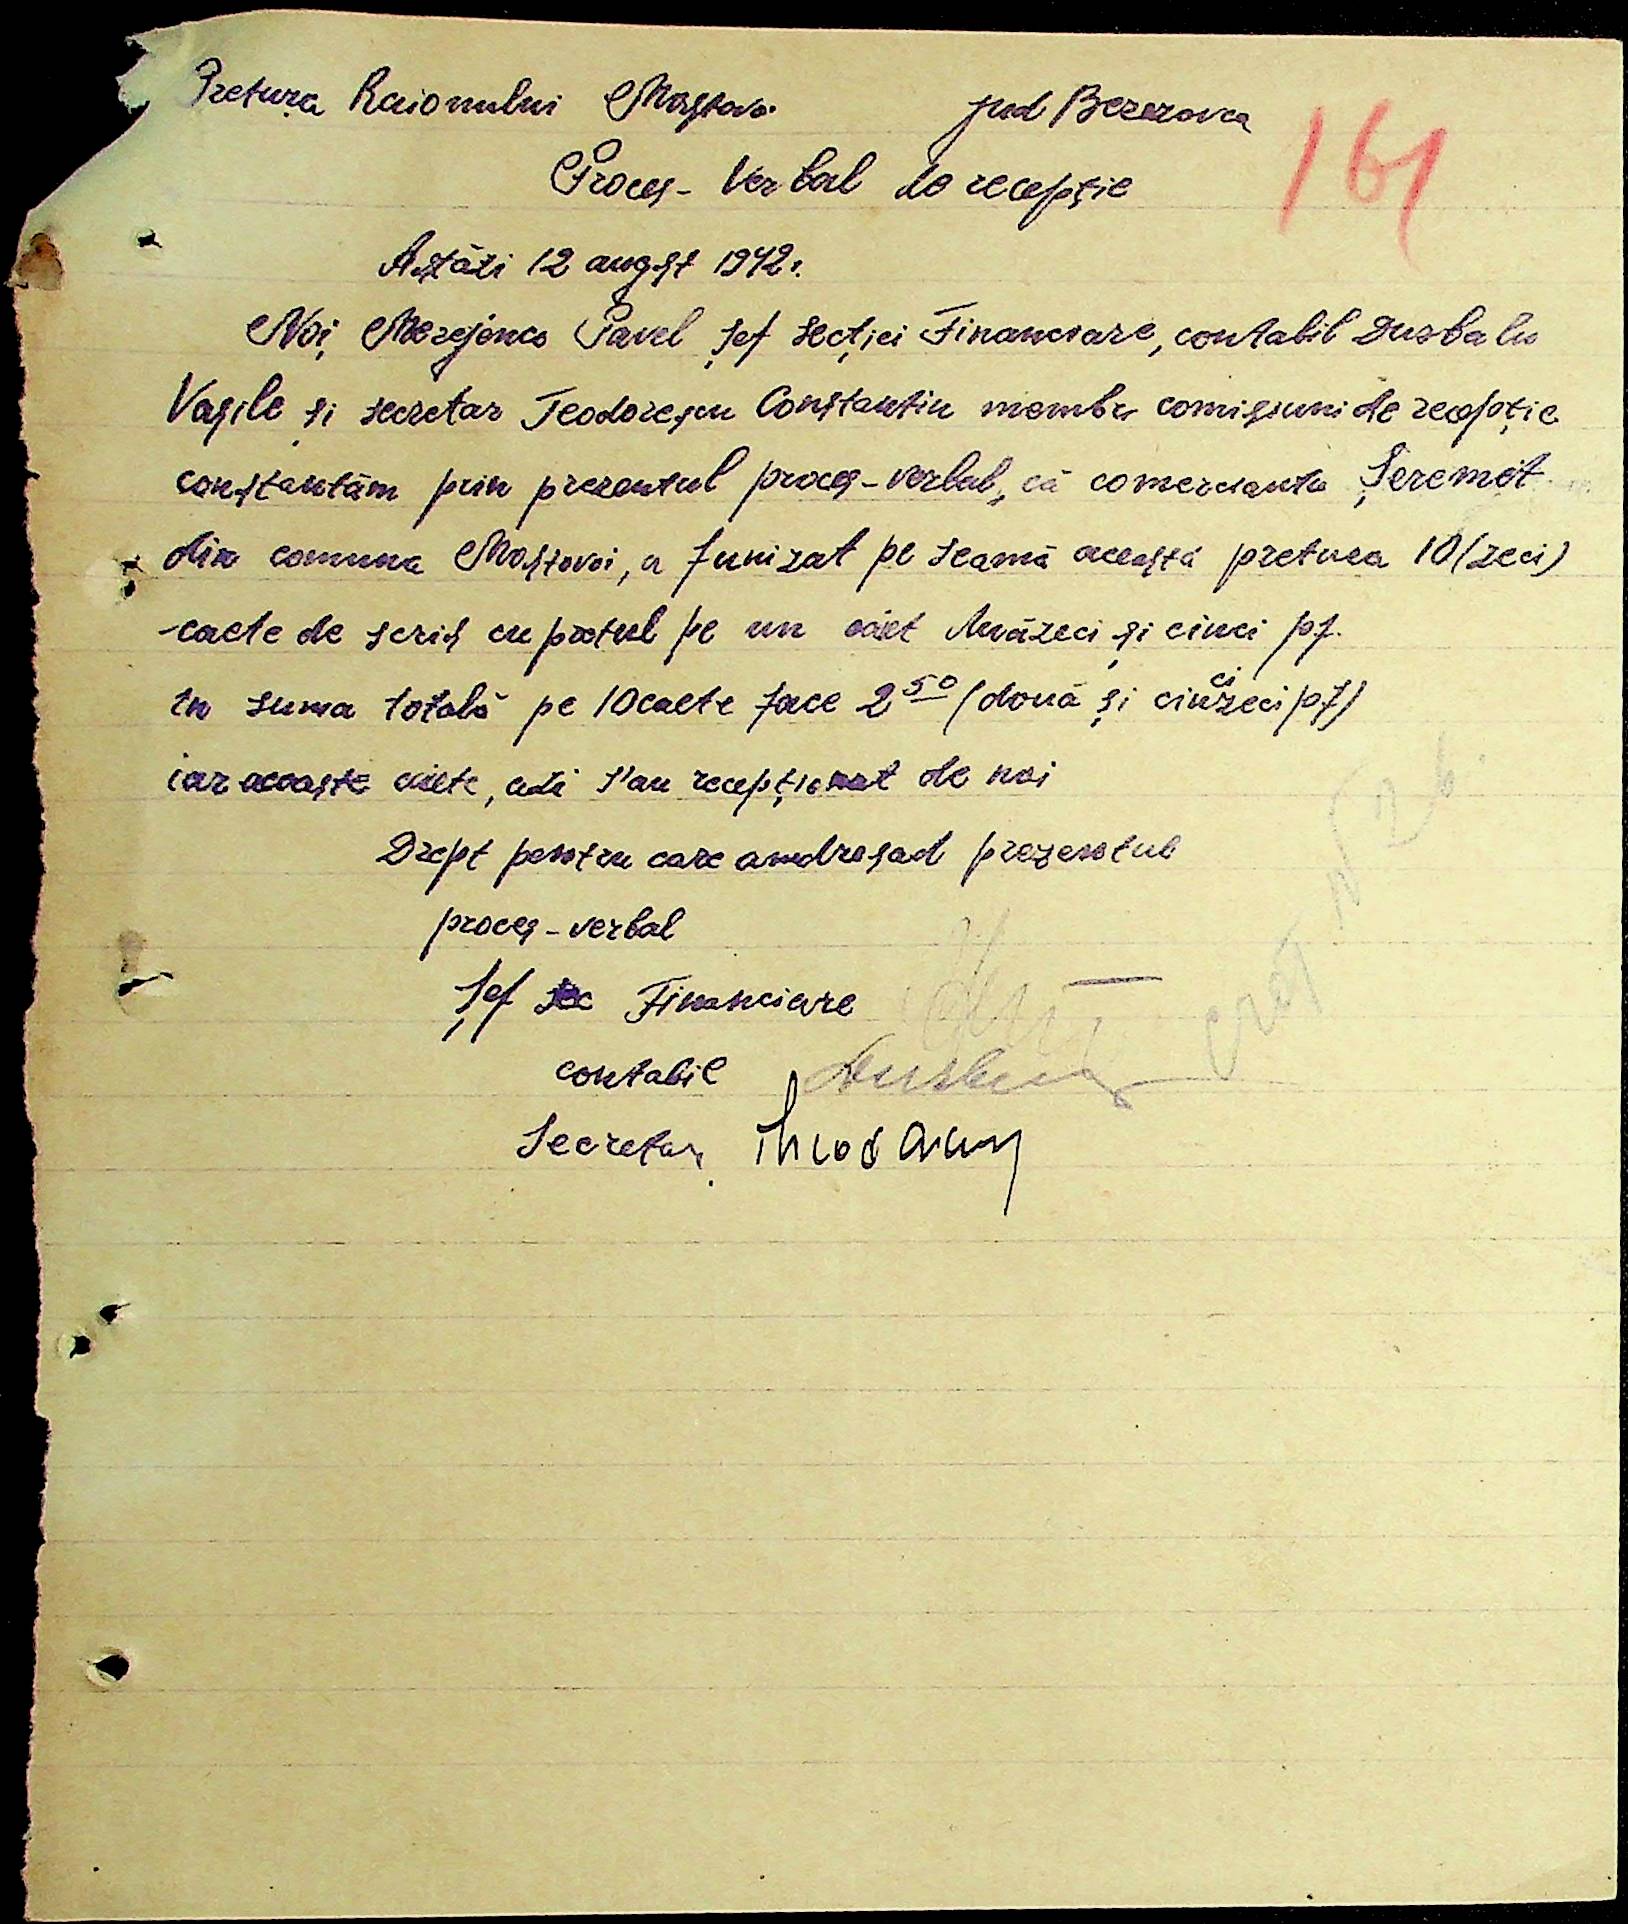 Pretura Raionului Mostovoi jud Berezovca
161
Proces-Verbal de recepție
Astăzi 12 august 1942.
Noi, Merejenco Pavel șef secției Financiare, contabil
Vasile și secretar Teodorescu Constantin membri comisiuni de recepție
constantăm prin prezentul proces-verbal, că comersianta Șeremet
din comuna Mostovoi, a funizat pe seamă aceasta pretura 10 (zeci)
caete de scris cu prețul pe un caiet douăzeci și cinci pf.
în suma totală pe 10 caete face 2 50 (două și cincizeci pf)
iar aceaste caiete, s'au recepționat de noi
Drept pentru care amdresad prezentul
proces-verbal
Șef sec Financiare
contabil
Secretar